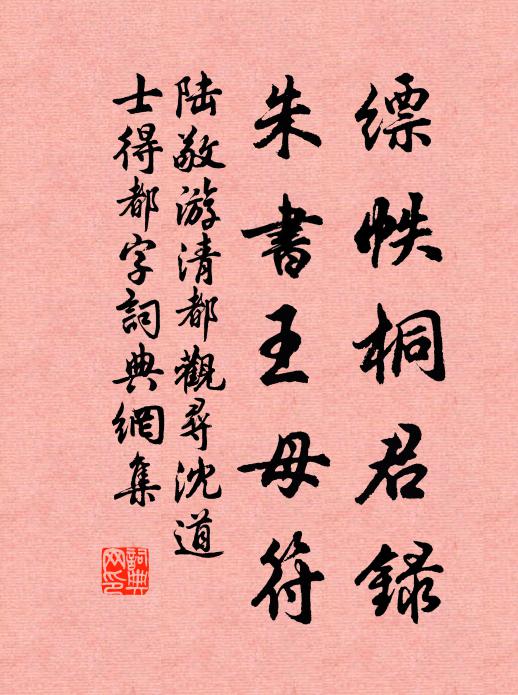 缥帙桐君録
朱書王母符
陸敬游清都觀尋沈道
士得都字詞典網集
詞典网印